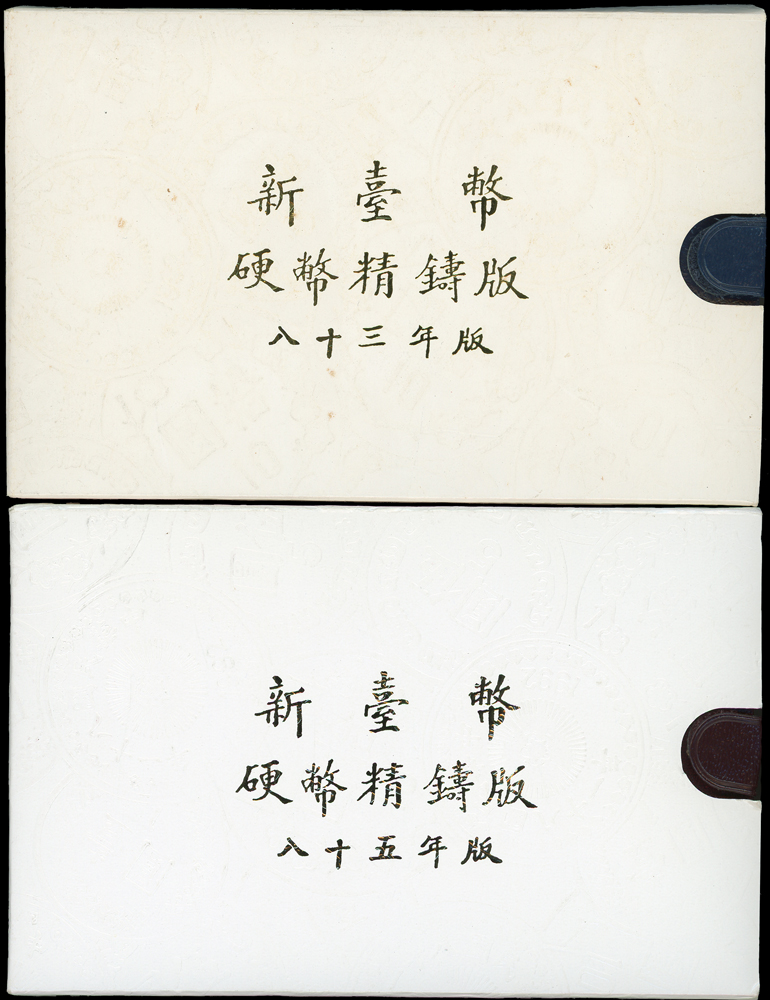 新臺幣
硬幣精鑄版
八十三年版
新臺幣
硬幣精鑄版
八十五年版